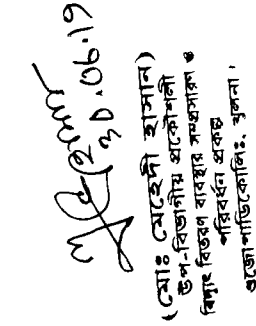 ৩০.০৬.১৯
(মোঃ মেহেদী হাসান)
উপ-বিভাগীয় প্রকৌশলী
বিদ্যুৎ বিতরণ ব্যবস্থার সম্প্রসারণ ও
পরিবর্ধন প্রকল্প
ওজোপাডিকোলিঃ, খুলনা।